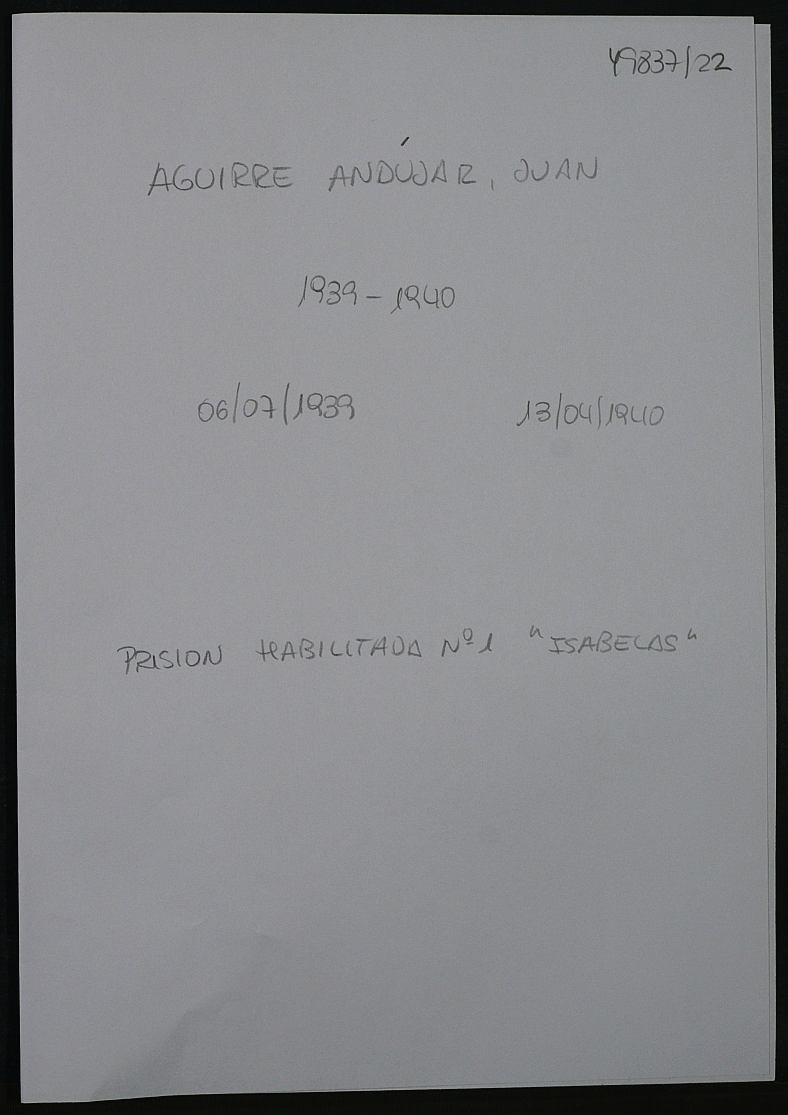 49837/22
AGUIRRE ANDÚJAR, JUAN
1939 - 1940
06/07/1939 13/04/1940
PRISION HABILITADA Nº 1 "ISABELAS"